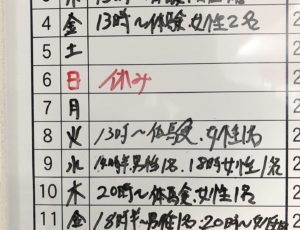 4 金 13時〜体験.女性2名 2
5 土
6 日 休み 2
7 月 2
8 火 13時〜体験.女性1名 2
9 水 14時半男性1名.18時女性1名 2
10 木 20時〜体験.女性1名 2
11 金 18時半〜男性1名.20時〜女性